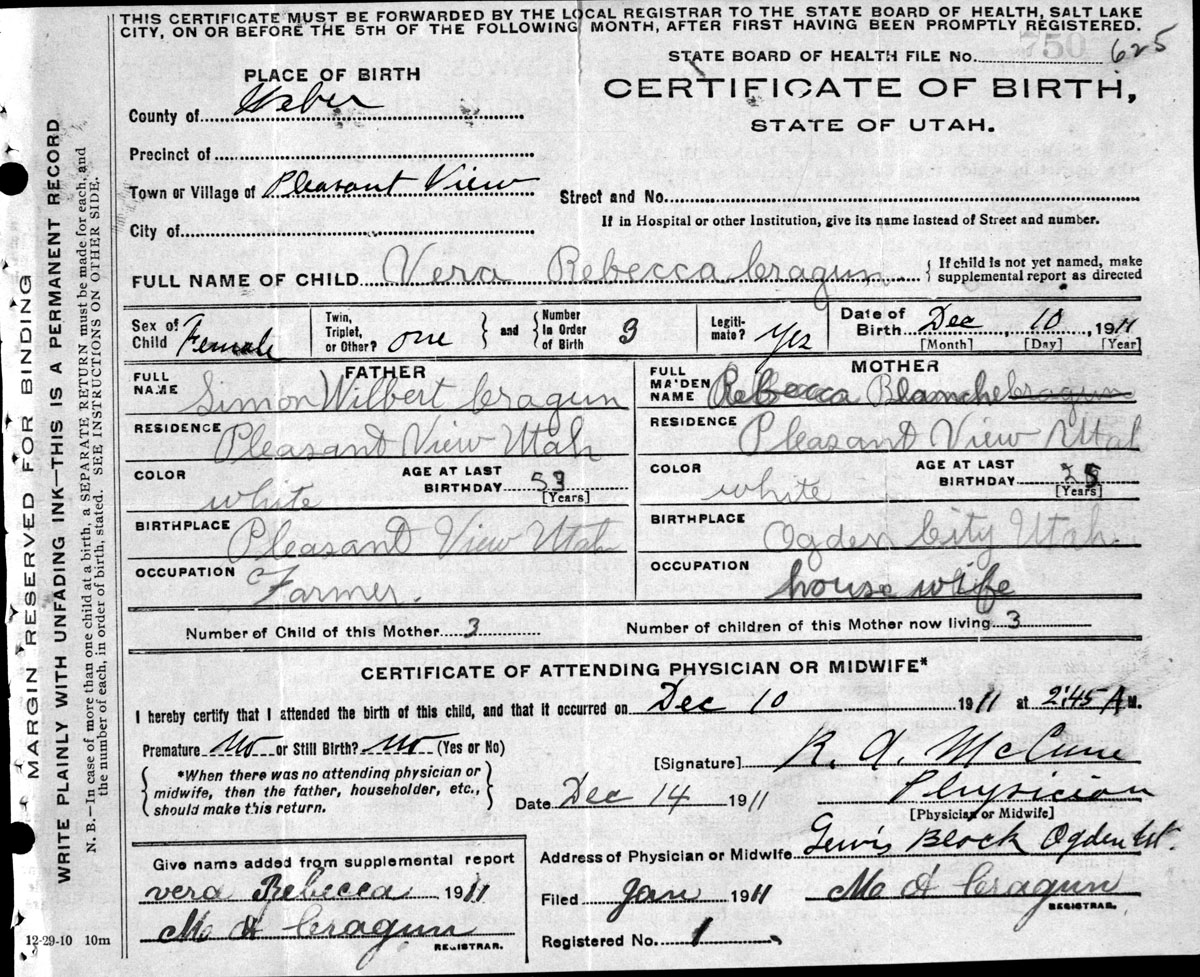 THIS CERTIFICATE MUST BE FORWARDED BY THE LOCAL REGISTRAR TO THE STATE BOARD OF HEALTH, SALT LAKE
CITY, ON OR BEFORE THE 5TH OF THE FOLLOWING MONTH, AFTER FIRST HAVING BEEN PROMPTLY REGISTERED.
STATE BOARD OF HEALTH FILE No. 750 625
PLACE OF BIRTH
CERTIFICATE OF BIRTH,
County of Weber
STATE OF UTAH.
Precinct of
Town or Village of Pleasant View
Street and No.
If in Hospital or other Institution, give its name instead of Street and number.
City of
FULL NAME OF CHILD Vera Rebecca Cragun { If child is not yet named, make
supplemental report as directed
Sex of Child Female
Twin, Triplet, or Other? one } and { Number In Order of Birth 3
Legiti-mate? Yes
Date of Birth Dec, 10, 1911
[Month] [Day] [Year]
FATHER
FULL NAME Simon Wilbert Cragun
RESIDENCE Pleasant View Utah
COLOR white AGE AT LAST BIRTHDAY 53 [Years]
BIRTHPLACE Pleasant View Utah
OCCUPATION Farmer.
MOTHER
FULL MAIDEN NAME Rebecca Blanche Cragun
RESIDENCE Pleasant View Utah
COLOR white AGE AT LAST BIRTHDAY [Years]
BIRTHPLACE Ogden City Utah.
OCCUPATION house wife
Number of Child of this Mother 3 Number of children of this Mother now living 3
CERTIFICATE OF ATTENDING PHYSICIAN OR MIDWIFE*
I hereby certify that I attended the birth of this child, and that it occurred on Dec 10 1911 at 2:45 A M.
Premature No or Still Birth? No (Yes or No)
{ *When there was no attending physician or
midwife, then the father, householder, etc.,
should make this return. }
[Signature] R. A. McCune
Date Dec 14 1911 Physician
[Physician or Midwife]
Address of Physician or Midwife Lewis Block Ogden Ut.
Give name added from supplemental report
vera Rebecca 1911
M A Cragun
REGISTRAR.
Filed Jan 1911 M A Cragun
REGISTRAR.
Registered No. 1
12-29-10 10m
MARGIN RESERVED FOR BINDING
WRITE PLAINLY WITH UNFADING INK—THIS IS A PERMANENT RECORD
N. B.—In case of more than one child at a birth, a SEPARATE RETURN must be made for each, and
the number of each, in order of birth, stated. SEE INSTRUCTIONS ON OTHER SIDE.